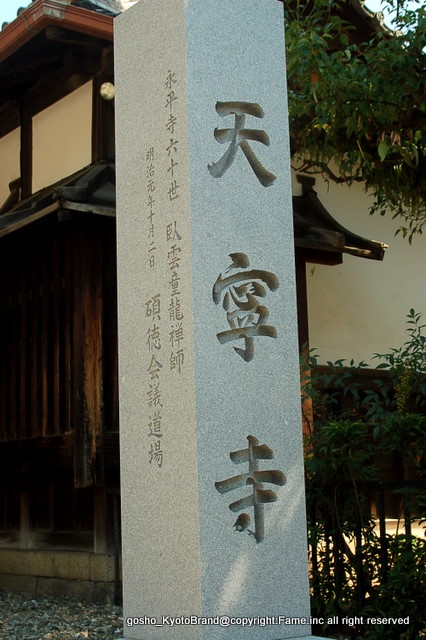 天寧寺
永平寺六十世 臥雲童龍禅師
明治元年十月二日 碩徳会議道場
gosho_KyotoBrand@copyright.Fame.inc all right reserved